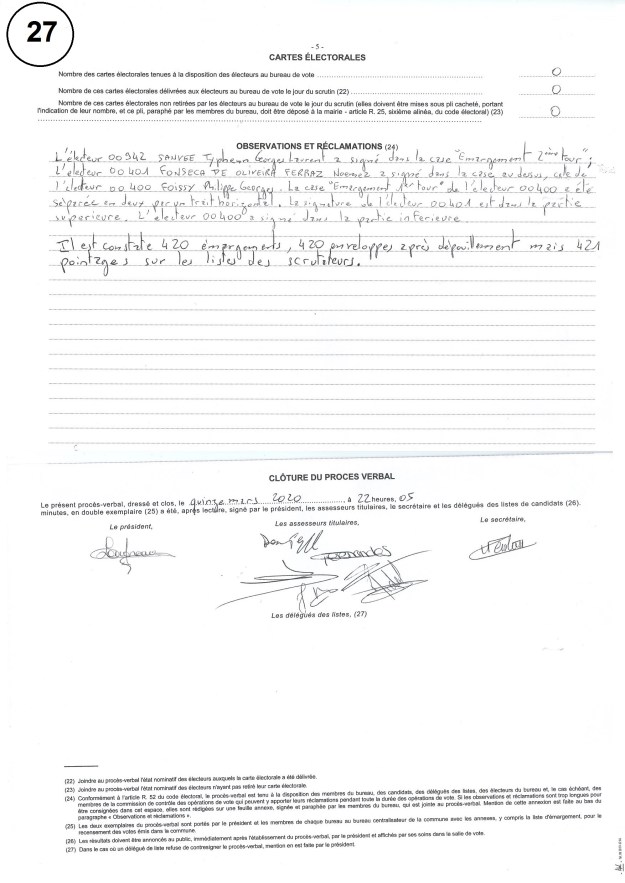 27
- 5 -
CARTES ÉLECTORALES
Nombre des cartes électorales tenues à la disposition des électeurs au bureau de vote 0
Nombre de ces cartes électorales délivrées aux électeurs au bureau de vote le jour du scrutin (22) 0
Nombre de ces cartes électorales non retirées par les électeurs au bureau de vote le jour du scrutin (elles doivent être mises sous pli cacheté, portant
l'indication de leur nombre, et ce pli, paraphé par les membres du bureau, doit être déposé à la mairie - article R. 25, sixième alinéa, du code électoral) (23) 0
OBSERVATIONS ET RÉCLAMATIONS (24)
L'électeur 00942 SANVEE Georges Laurent a signé dans la case "Emargement 2ème tour";
L'électeur 00401 FONSECA DE OLIVEIRA FERRAZ a signé dans la case au dessus, celle de
l'électeur 00400 FOISSY Philippe Georges. La case "Emargement 1er tour" de l'électeur 00400 a été
séparée en deux par un trait horizontal. La signature de l'électeur 00401 est dans la partie
supérieure. L'électeur 00400 a signé dans la partie inférieure.
Il est constaté 420 émargements, 420 enveloppes après dépouillement mais 421
pointages sur les listes des scrutateurs.
CLÔTURE DU PROCES VERBAL
Le présent procès-verbal, dressé et clos, le quinze mars 2020, à 22 heures, 05
minutes, en double exemplaire (25) a été, après lecture, signé par le président, les assesseurs titulaires, le secrétaire et les délégués des listes de candidats (26).
Le président, Les assesseurs titulaires, Le secrétaire,
Fernandes
Les délégués des listes, (27)
(22) Joindre au procès-verbal l'état nominatif des électeurs auxquels la carte électorale a été délivrée.
(23) Joindre au procès-verbal l'état nominatif des électeurs n'ayant pas retiré leur carte électorale.
(24) Conformément à l'article R. 52 du code électoral, le procès-verbal est tenu à la disposition des membres du bureau, des candidats, des délégués des listes, des électeurs du bureau et, le cas échéant, des
membres de la commission de contrôle des opérations de vote qui peuvent y apporter leurs réclamations pendant toute la durée des opérations de vote. Si les observations et réclamations sont trop longues pour
être consignées dans cet espace, elles sont rédigées sur une feuille annexe, signée et paraphée par les membres du bureau, qui est jointe au procès-verbal. Mention de cette annexion est faite au bas du
paragraphe « Observations et réclamations ».
(25) Les deux exemplaires du procès-verbal sont portés par le président et les membres de chaque bureau au bureau centralisateur de la commune avec les annexes, y compris la liste d'émargement, pour le
recensement des votes émis dans la commune.
(26) Les résultats doivent être annoncés au public, immédiatement après l'établissement du procès-verbal, par le président et affichés par ses soins dans la salle de vote.
(27) Dans le cas où un délégué de liste refuse de contresigner le procès-verbal, mention en est faite par le président.